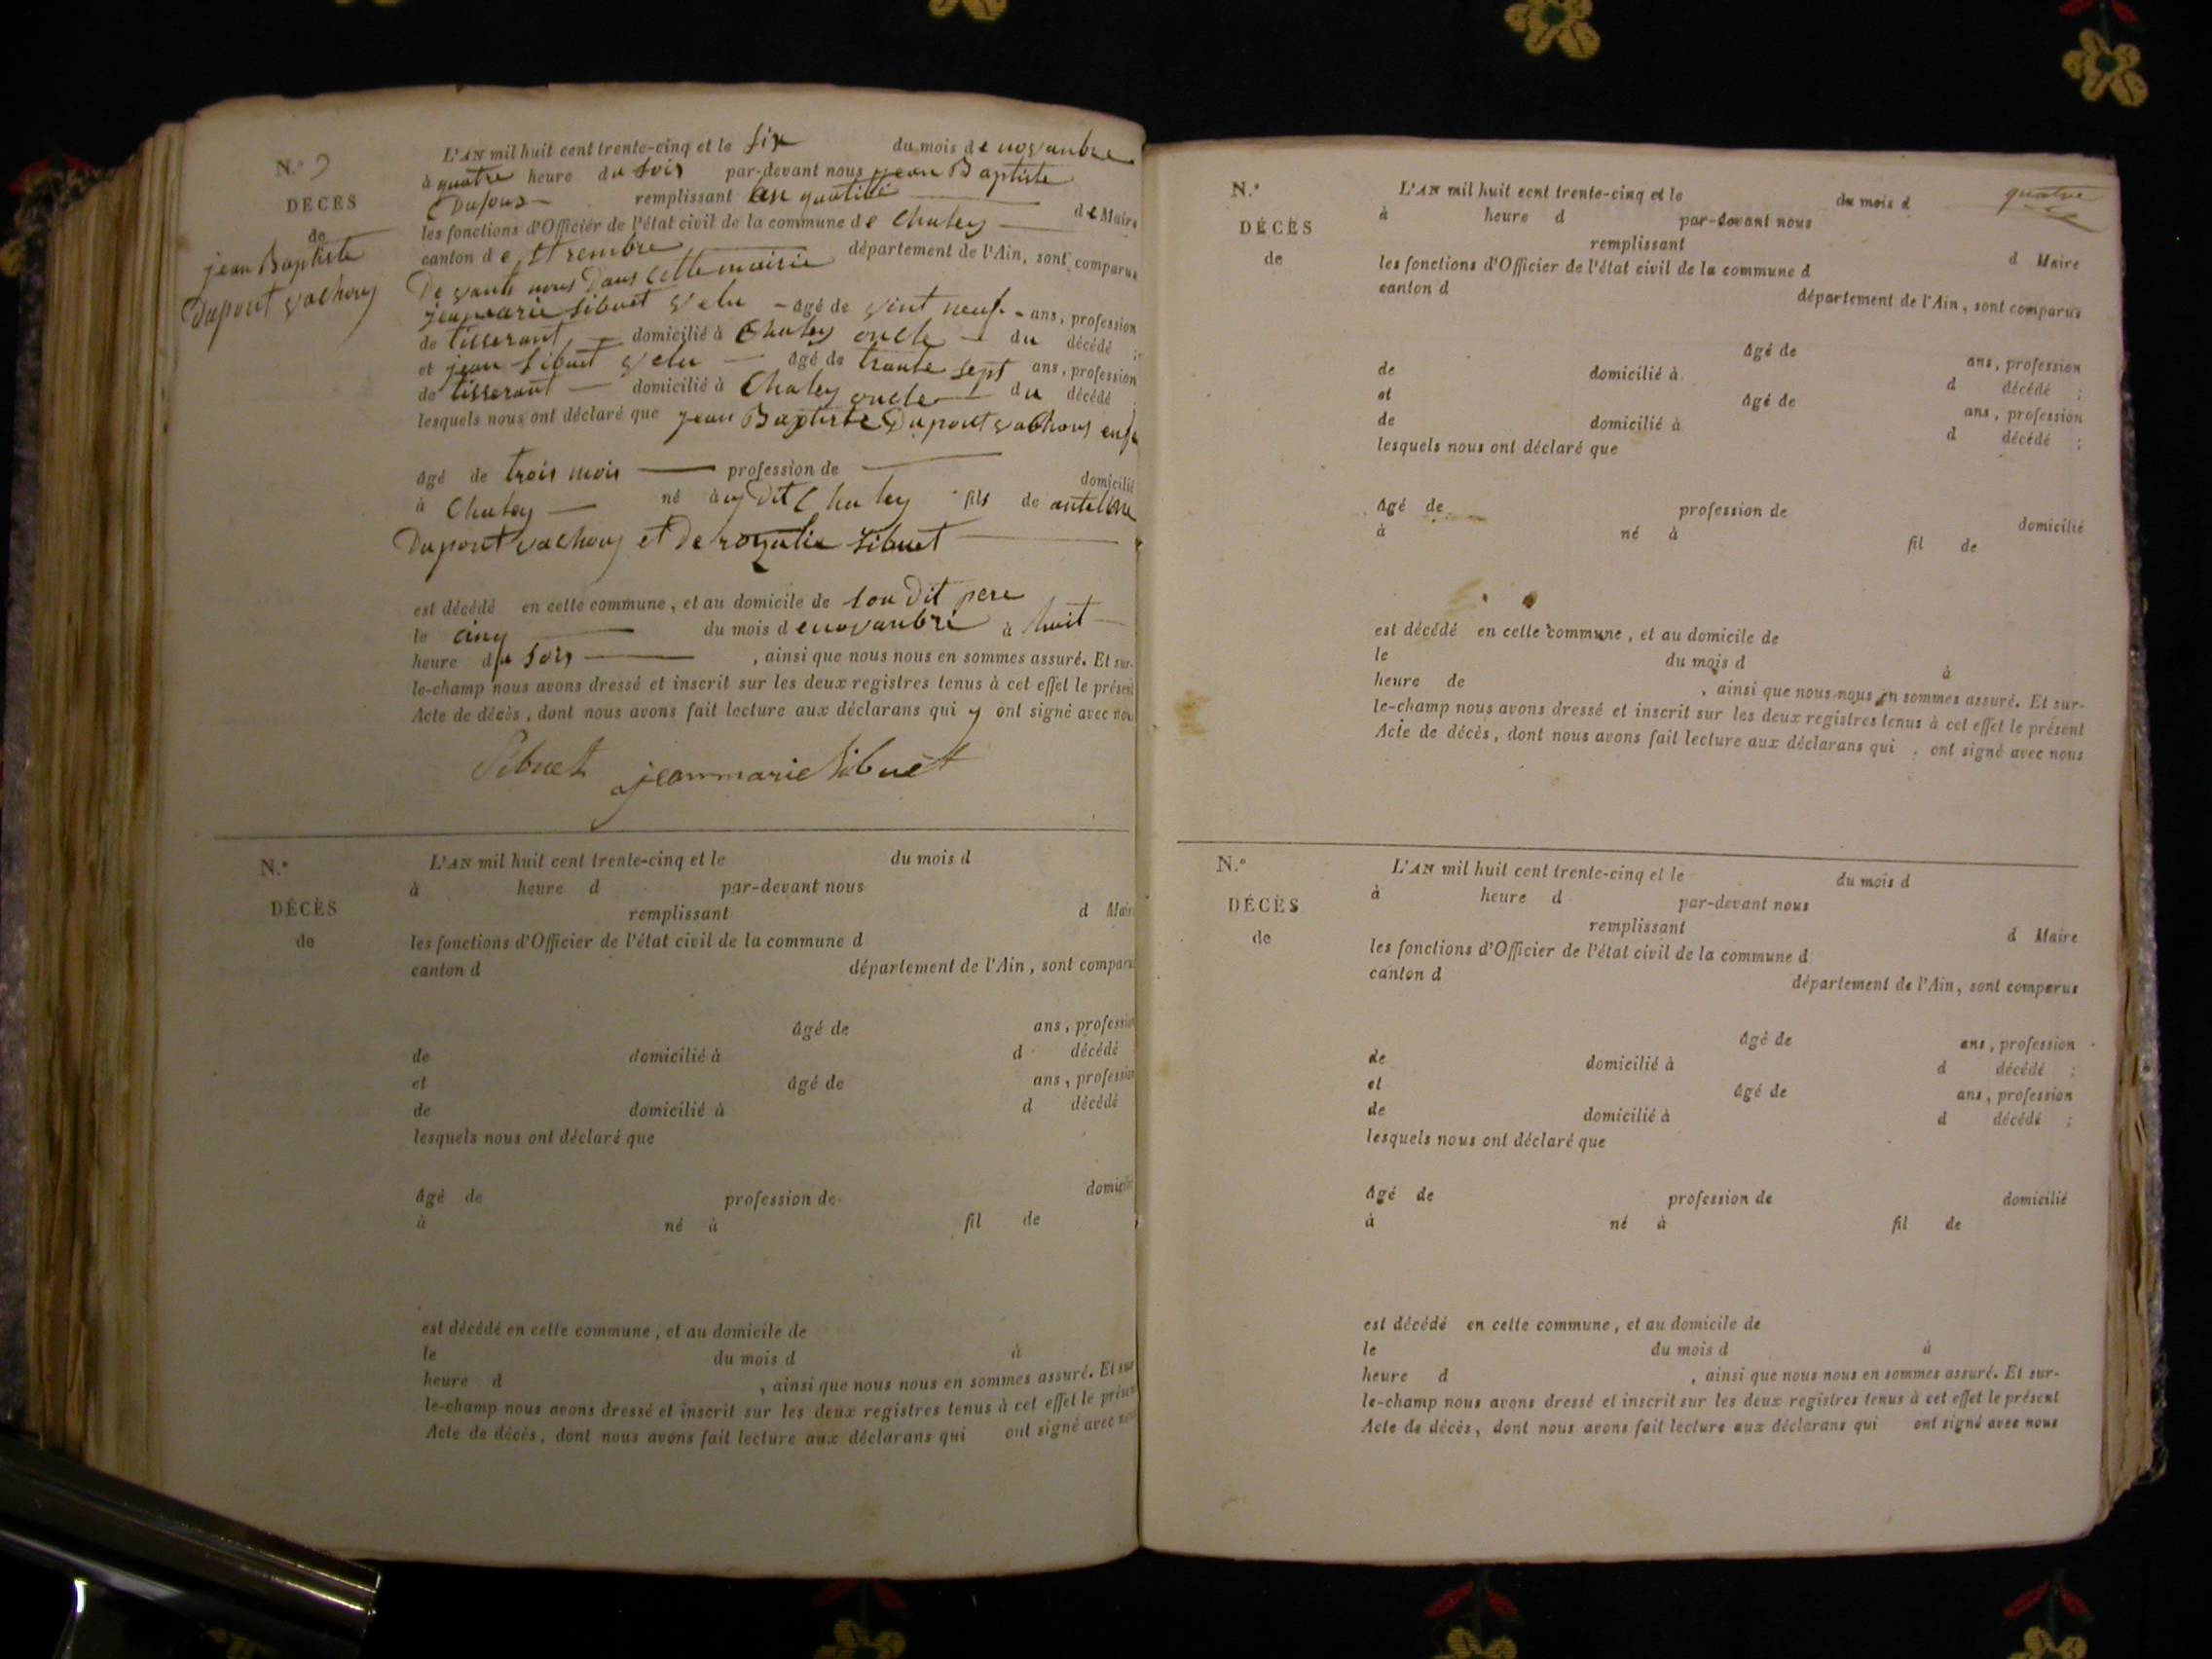 N.° 9
DÉCÈS
de
jean Baptiste
Dupont vachon
L'AN mil huit cent trente-cinq et le six du mois de novanbre
à quatre heure du soir par-devant nous jean Baptiste
Dufour remplissant en qualité de Maire
les fonctions d'Officier de l'état civil de la commune de Chaley
canton de St rembre département de l'Ain, sont comparus
De vants nous Dans cette mairie
jeanmarie Sibuet velu âgé de vint neuf ans, profession
de tisserant domicilié à Chaley oncle du décédé ;
et jean Sibuet velu âgé de trante sept ans, profession
de tisserant domicilié à Chaley oncle du décédé
lesquels nous ont déclaré que jean Baptiste Dupont vachon
âgé de trois mois profession de domicilié
à Chaley né à Chaley fils de
Dupont vachon et De rozalie Sibuet
est décédé en cette commune, et au domicile de son Dit pere
le cinq du mois de novanbre à huit
heure du soir , ainsi que nous nous en sommes assuré. Et sur-
le-champ nous avons dressé et inscrit sur les deux registres tenus à cet effet le présent
Acte de décès, dont nous avons fait lecture aux déclarans qui y ont signé avec nous
Sibuet jeanmarie Sibuet
N.°
DÉCÈS
de
L'AN mil huit cent trente-cinq et le du mois d
à heure d par-devant nous
remplissant d Maire
les fonctions d'Officier de l'état civil de la commune d
canton d département de l'Ain, sont comparus
âgé de ans, profession
de domicilié à d décédé
et âgé de ans, profession
de domicilié à d décédé
lesquels nous ont déclaré que
âgé de profession de domicilié
à né à fil de
est décédé en cette commune, et au domicile de
le du mois d à
heure d , ainsi que nous nous en sommes assuré. Et sur
le-champ nous avons dressé et inscrit sur les deux registres tenus à cet effet le présent
Acte de décès, dont nous avons fait lecture aux déclarans qui ont signé avec nous
quatre
N.°
DÉCÈS
de
L'AN mil huit cent trente-cinq et le du mois d
à heure d par-devant nous
remplissant d Maire
les fonctions d'Officier de l'état civil de la commune d
canton d département de l'Ain, sont comparus
âgé de ans, profession
de domicilié à d décédé ;
et âgé de ans, profession
de domicilié à d décédé ;
lesquels nous ont déclaré que
âgé de profession de domicilié
à né à fil de
est décédé en cette commune, et au domicile de
le du mois d à
heure de , ainsi que nous nous en sommes assuré. Et sur-
le-champ nous avons dressé et inscrit sur les deux registres tenus à cet effet le présent
Acte de décès, dont nous avons fait lecture aux déclarans qui ont signé avec nous
N.°
DÉCÈS
de
L'AN mil huit cent trente-cinq et le du mois d
à heure d par-devant nous
remplissant d Maire
les fonctions d'Officier de l'état civil de la commune d
canton d département de l'Ain, sont comparus
âgé de ans, profession
de domicilié à d décédé ;
et âgé de ans, profession
de domicilié à d décédé ;
lesquels nous ont déclaré que
âgé de profession de domicilié
à né à fil de
est décédé en cette commune, et au domicile de
le du mois d à
heure d , ainsi que nous nous en sommes assuré. Et sur-
le-champ nous avons dressé et inscrit sur les deux registres tenus à cet effet le présent
Acte de décès, dont nous avons fait lecture aux déclarans qui ont signé avec nous